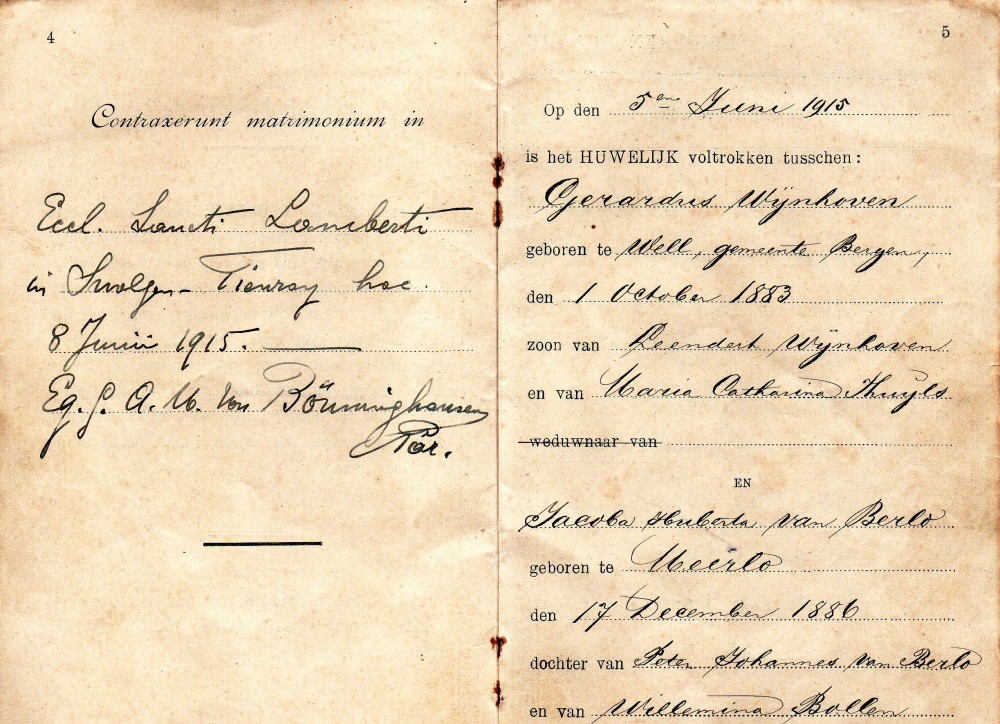 4
Contraxerunt matrimonium in
Eccl. Sancti Lamberti
in Swolgen-Tienray hoc.
8 Junii 1915. —
Eg. J. A. M. von Bönninghausen
Par.
5
Op den 5en Juni 1915
is het HUWELIJK voltrokken tusschen:
Gerardus Wijnhoven
geboren te Well, gemeente Bergen,
den 1 October 1883
zoon van Leendert Wijnhoven
en van Maria Catharina Thuyls
weduwnaar van
EN
Jacoba Huberta van Berlo
geboren te Meerlo
den 17 December 1886
dochter van Peter Johannes van Berlo
en van Willemina Bollen